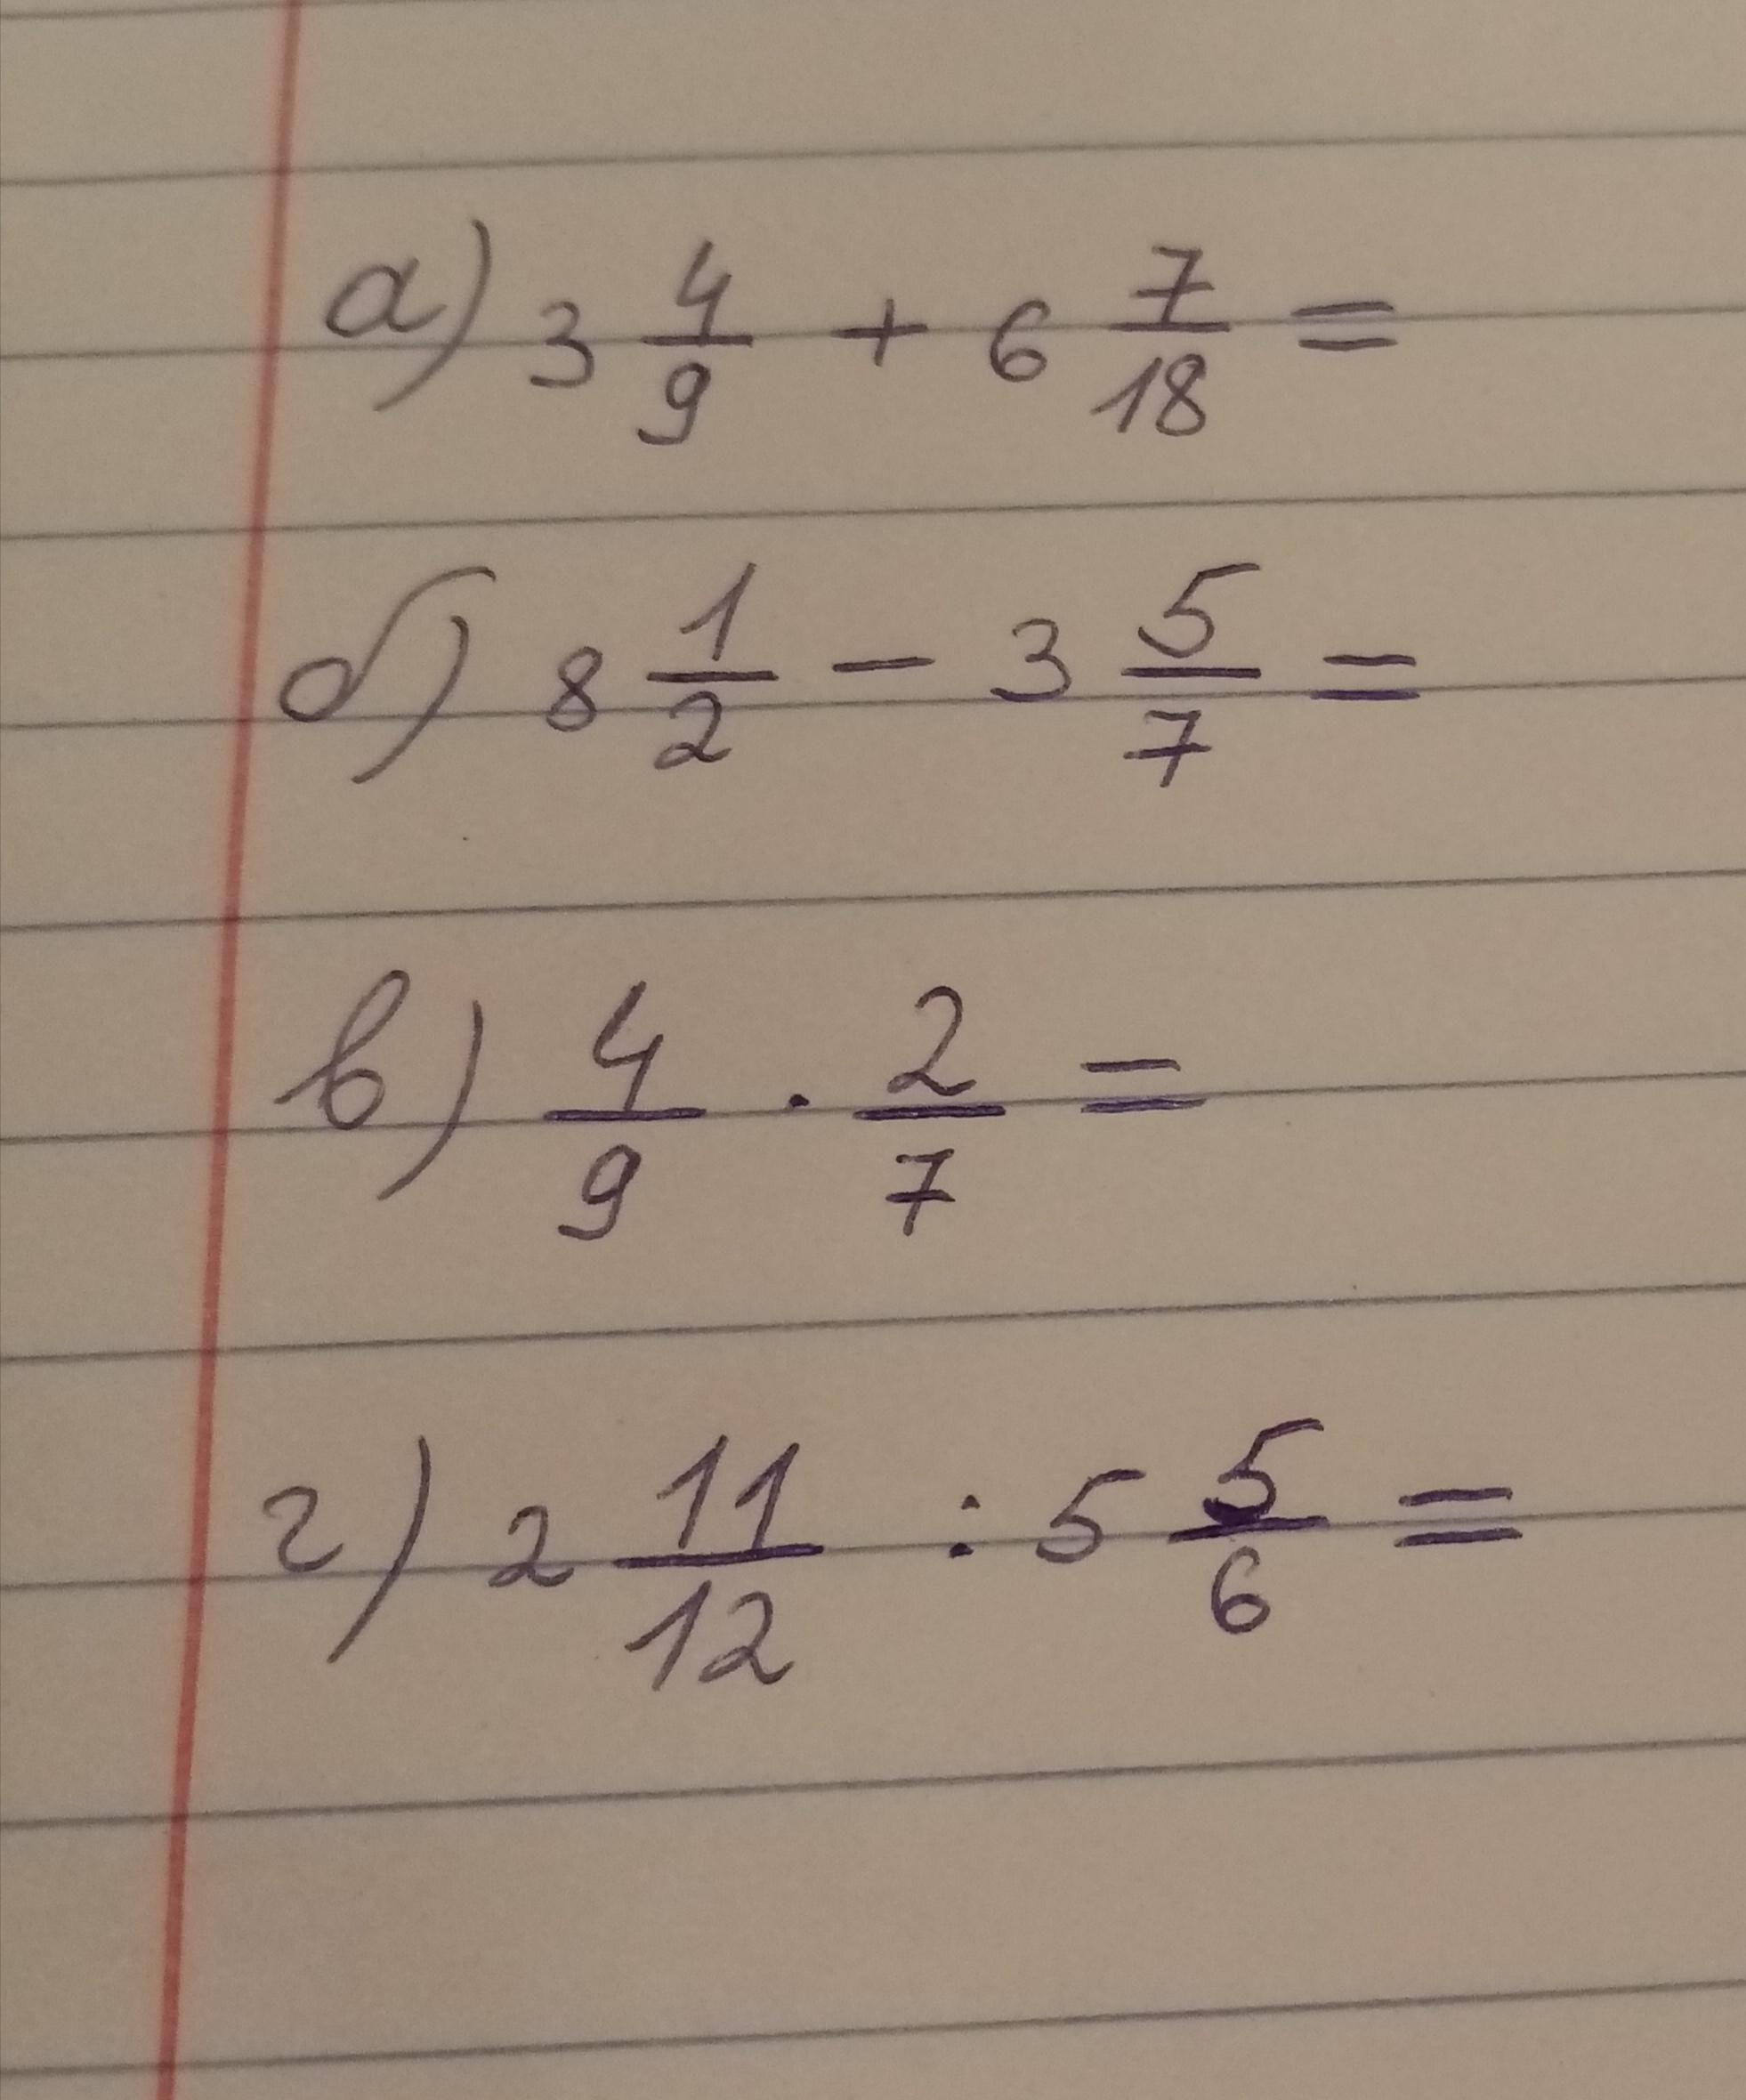 а) 3 4/9 + 6 7/18 =
б) 8 1/2 - 3 5/7 =
в) 4/9 · 2/7 =
г) 2 11/12 : 5 5/6 =